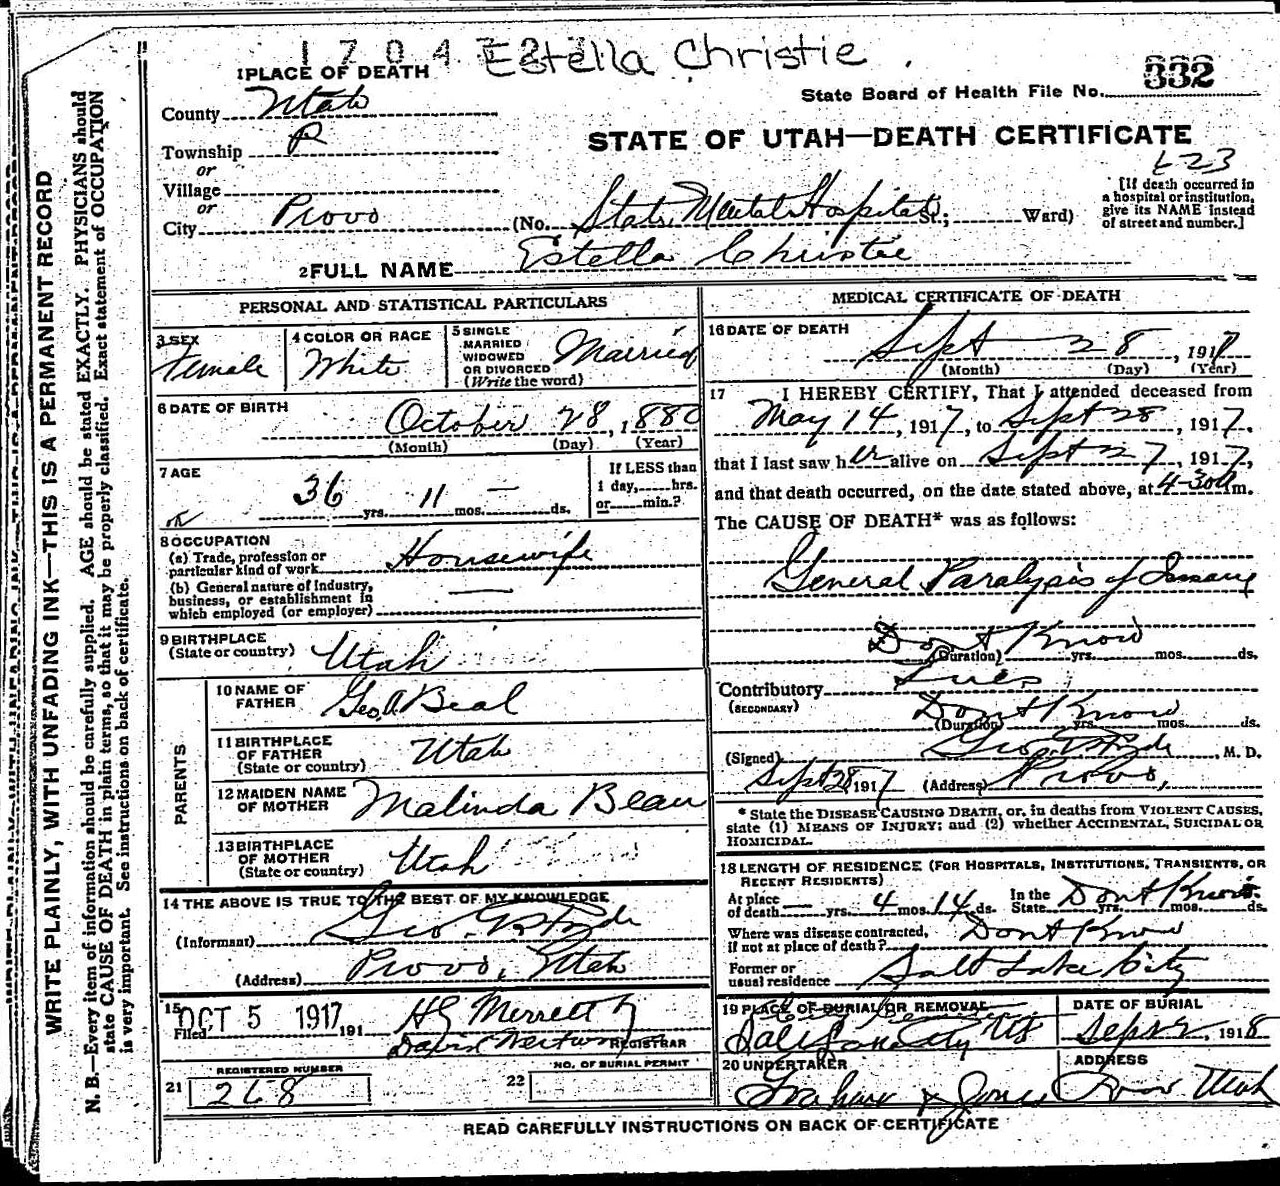 1704
Estella Christie
1 PLACE OF DEATH
332
State Board of Health File No.
County Utah
STATE OF UTAH—DEATH CERTIFICATE
Township P
or
Village
or
City Provo
(No. State Mental Hospital St.; Ward)
[If death occurred in
a hospital or institution,
give its NAME instead
of street and number.]
2 FULL NAME Estella Christie
PERSONAL AND STATISTICAL PARTICULARS
3 SEX
Female
4 COLOR OR RACE
White
5 SINGLE
MARRIED
WIDOWED
OR DIVORCED
(Write the word)
Married
6 DATE OF BIRTH
October 28, 1880
(Month) (Day) (Year)
7 AGE
36 yrs. 11 mos. — ds.
If LESS than
1 day, hrs.
or min.?
8 OCCUPATION
(a) Trade, profession or
particular kind of work Housewife
(b) General nature of industry,
business, or establishment in
which employed (or employer) —
9 BIRTHPLACE
(State or country) Utah
PARENTS
10 NAME OF
FATHER Geo. A. Beal
11 BIRTHPLACE
OF FATHER
(State or country) Utah
12 MAIDEN NAME
OF MOTHER Malinda Bean
13 BIRTHPLACE
OF MOTHER
(State or country) Utah
14 THE ABOVE IS TRUE TO THE BEST OF MY KNOWLEDGE
(Informant) Geo.
(Address) Provo, Utah
15
Filed OCT 5 1917 191
H G Merrett
REGISTRAR
21
REGISTERED NUMBER
268
22
NO. OF BURIAL PERMIT
MEDICAL CERTIFICATE OF DEATH
16 DATE OF DEATH
Sept 28, 1917
(Month) (Day) (Year)
17 I HEREBY CERTIFY, That I attended deceased from
May 14, 1917, to Sept 28, 1917,
that I last saw her alive on Sept 27, 1917,
and that death occurred, on the date stated above, at 4-30 a m.
The CAUSE OF DEATH* was as follows:
General Paralysis of Insane
Dont Know
(Duration) yrs. mos. ds.
Contributory Lues
(SECONDARY)
Dont Know
(Duration) yrs. mos. ds.
(Signed) Geo. M. D.
Sept 28 1917 (Address) Provo,
* State the DISEASE CAUSING DEATH, or, in deaths from VIOLENT CAUSES,
state (1) MEANS OF INJURY; and (2) whether ACCIDENTAL, SUICIDAL OR
HOMICIDAL.
18 LENGTH OF RESIDENCE (FOR HOSPITALS, INSTITUTIONS, TRANSIENTS, OR
RECENT RESIDENTS)
At place
of death — yrs. 4 mos. 14 ds.
In the
State Dont Know yrs. mos. ds.
Where was disease contracted,
if not at place of death? Dont Know
Former or
usual residence Salt Lake City
19 PLACE OF BURIAL OR REMOVAL
DATE OF BURIAL
20 UNDERTAKER
ADDRESS
Provo Utah
READ CAREFULLY INSTRUCTIONS ON BACK OF CERTIFICATE
WRITE PLAINLY, WITH UNFADING INK—THIS IS A PERMANENT RECORD
N. B.—Every item of information should be carefully supplied. AGE should be stated EXACTLY. PHYSICIANS should
state CAUSE OF DEATH in plain terms, so that it may be properly classified. Exact statement of OCCUPATION
is very important. See instructions on back of certificate.